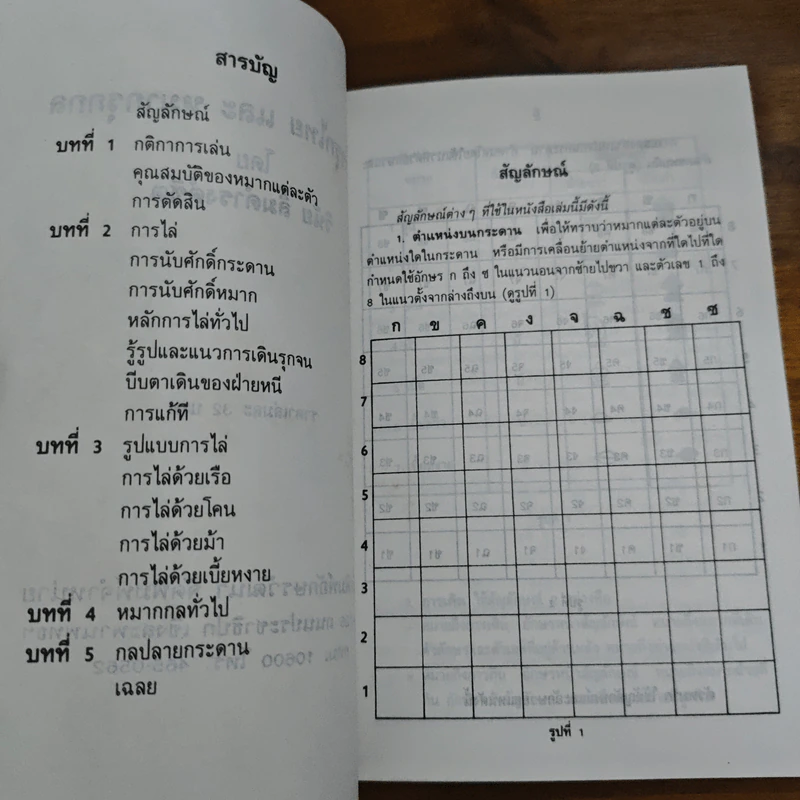 สารบัญ
สัญลักษณ์
บทที่ 1 กติกาการเล่น
คุณสมบัติของหมากแต่ละตัว
การตัดสิน
บทที่ 2 การไล่
การนับศักดิ์กระดาน
การนับศักดิ์หมาก
หลักการไล่ทั่วไป
รู้รูปและแนวการเดินรุกจน
บีบตาเดินของฝ่ายหนี
การแก้ที
บทที่ 3 รูปแบบการไล่
การไล่ด้วยเรือ
การไล่ด้วยโคน
การไล่ด้วยม้า
การไล่ด้วยเบี้ยหงาย
บทที่ 4 หมากกลทั่วไป
บทที่ 5 กลปลายกระดาน
เฉลย
สัญลักษณ์
สัญลักษณ์ต่าง ๆ ที่ใช้ในหนังสือเล่มนี้มีดังนี้
1. ตำแหน่งบนกระดาน เพื่อให้ทราบว่าหมากแต่ละตัวอยู่บน
ตำแหน่งใดในกระดาน หรือมีการเคลื่อนย้ายตำแหน่งจากที่ใดไปที่ใด
กำหนดใช้อักษร ก ถึง ซ ในแนวนอนจากซ้ายไปขวา และตัวเลข 1 ถึง
8 ในแนวตั้งจากล่างถึงบน (ดูรูปที่ 1)
ก ข ค ง จ ฉ ช ซ
8
7
6
5
4
3
2
1
รูปที่ 1